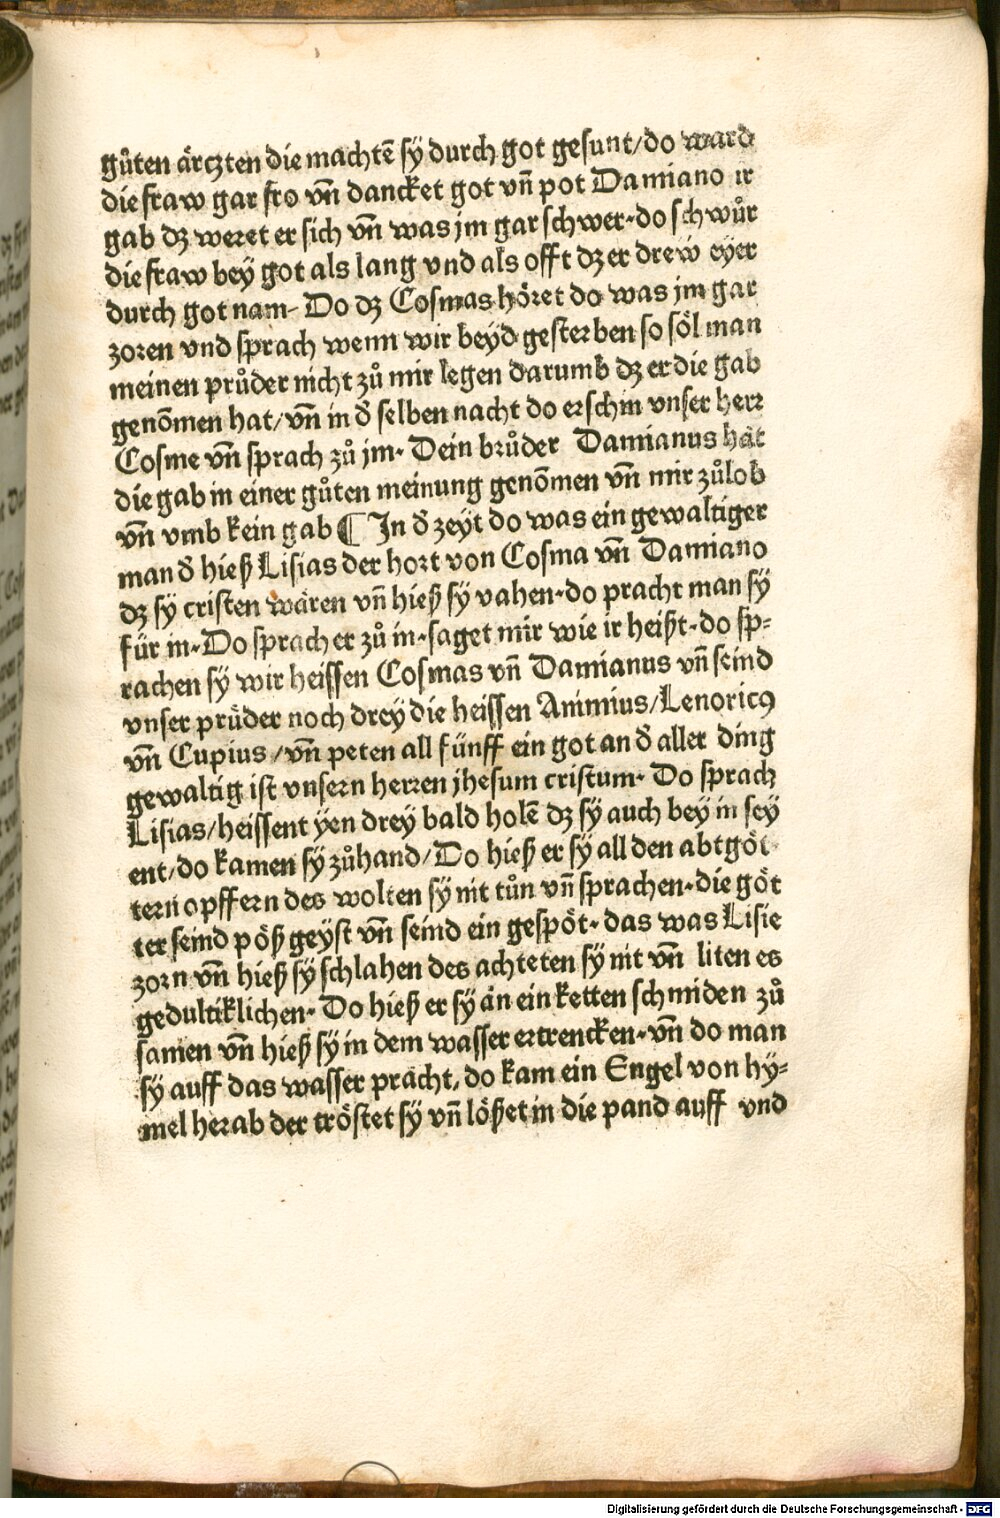 gůten ärczten die machtē sÿ durch got gesunt/do ward
die fraw gar fro vn̄ dancket got vn̄ pot Damiano ir
gab dz weret er sich vn̄ was jm gar schwer·do schwůr
die fraw bey got als lang vnd als offt dz er drew eyer
durch got nam· Do dz Cosmas höret do was jm gar
zoren vnd sprach wenn wir beyd gesterben so söl man
meinen průder nicht zů mir legen darumb dz er die gab
genōmen hat/vn̄ in d̄ selben nacht do erschin vnser herr
Cosme vn̄ sprach zů jm· Dein brůder Damianus hat
die gab in einer gůten meinung genōmen vn̄ mir zů lob
vn̄ vmb kein gab ¶ In d̄ zeyt do was ein gewaltiger
man d̄ hieß Lisias der hort von Cosma vn̄ Damiano
dz sÿ cristen wären vn̄ hieß sÿ vahen·do pracht man sÿ
für in·Do sprach er zů in·saget mir wie ir heißt·do sp⸗
rachen sÿ wir heissen Cosmas vn̄ Damianus vn̄ seind
vnser prüder noch drey die heissen Animius/Lenoricꝰ
vn̄ Cupius/vn̄ peten all fünff ein got an d̄ aller ding
gewaltig ist vnsern herren jhesum cristum· Do sprach
Lisias/heissent ÿen drey bald holē dz sÿ auch bey in sey
ent/do kamen sÿ zůhand/Do hieß er sÿ all den abtgöt
tern opffern des wolten sÿ nit tůn vn̄ sprachen·die göt
ter seind pöß geyst vn̄ seind ein gespöt·das was Lisie
zorn vn̄ hieß sÿ schlahen des achteten sÿ nit vn̄ liten es
gedultiklichen·Do hieß er sÿ än ein ketten schmiden zů
samen vn̄ hieß sÿ in dem wasser ertrencken·vn̄ do man
sÿ auff das wasser prächt, do kam ein Engel von hÿ⸗
mel herab der tröstet sÿ vn̄ lößet in die pand auff vnd
Digitalisierung gefördert durch die Deutsche Forschungsgemeinschaft - DFG